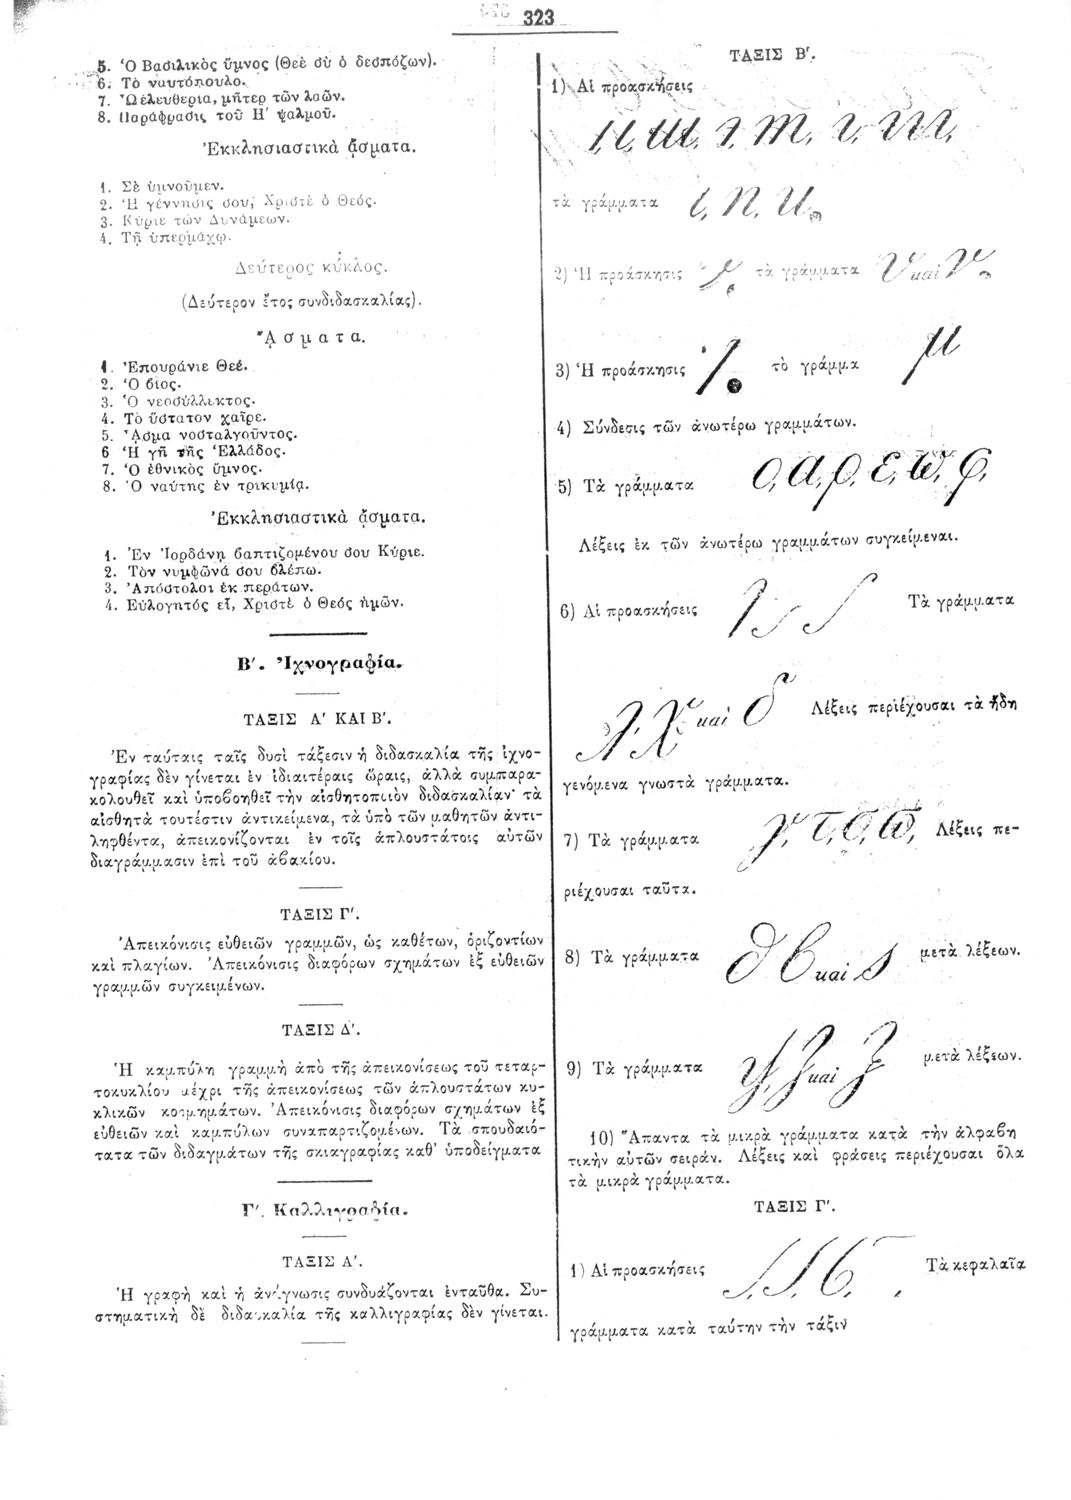 323
5. Ὁ Βασιλικὸς ὕμνος (Θεὲ σὺ ὁ δεσπόζων).
6. Τὸ ναυτόπουλο.
7. Ὦ ἐλευθερια, μῆτερ τῶν λαῶν.
8. Παράφρασις τοῦ Η' ψαλμοῦ.
Ἐκκλησιαστικὰ ᾄσματα.
1. Σὲ ὑμνοῦμεν.
2. Ἡ γέννησις σου, Χριστὲ ὁ Θεός.
3. Κύριε τῶν Δυνάμεων.
4. Τῇ ὑπερμάχῳ.
Δεύτερος κύκλος.
(Δεύτερον ἔτος συνδιδασκαλίας).
ᾌσματα.
1. Ἐπουράνιε Θεέ.
2. Ὁ βίος.
3. Ὁ νεοσύλλεκτος.
4. Τὸ ὕστατον χαῖρε.
5. ᾎσμα νοσταλγοῦντος.
6 Ἡ γῆ τῆς Ἑλλάδος.
7. Ὁ ἐθνικὸς ὕμνος.
8. Ὁ ναύτης ἐν τρικυμίᾳ.
Ἐκκλησιαστικὰ ᾄσματα.
1. Ἐν Ἰορδάνῃ βαπτιζομένου σου Κύριε.
2. Τὸν νυμφῶνά σου βλέπω.
3. Ἀπόστολοι ἐκ περάτων.
4. Εὐλογητός εἶ, Χριστὲ ὁ Θεός ἡμῶν.
Β'. Ἰχνογραφία.
ΤΑΞΙΣ Α' ΚΑΙ Β'.
Ἐν ταύταις ταῖς δυσὶ τάξεσιν ἡ διδασκαλία τῆς ἰχνο-
γραφίας δὲν γίνεται ἐν ἰδιαιτέραις ὥραις, ἀλλὰ συμπαρα-
κολουθεῖ καὶ ὑποβοηθεῖ τὴν αἰσθητοποιὸν διδασκαλίαν· τὰ
αἰσθητὰ τουτέστιν ἀντικείμενα, τὰ ὑπὸ τῶν μαθητῶν ἀντι-
ληφθέντα, ἀπεικονίζονται ἐν τοῖς ἁπλουστάτοις αὐτῶν
διαγράμμασιν ἐπὶ τοῦ ἀβακίου.
ΤΑΞΙΣ Γ'.
Ἀπεικόνισις εὐθειῶν γραμμῶν, ὡς καθέτων, ὁριζοντίων
καὶ πλαγίων. Ἀπεικόνισις διαφόρων σχημάτων ἐξ εὐθειῶν
γραμμῶν συγκειμένων.
ΤΑΞΙΣ Δ'.
Ἡ καμπύλη γραμμὴ ἀπὸ τῆς ἀπεικονίσεως τοῦ τεταρ-
τοκυκλίου μέχρι τῆς ἀπεικονίσεως τῶν ἁπλουστάτων κυ-
κλικῶν κοσμημάτων. Ἀπεικόνισις διαφόρων σχημάτων ἐξ
εὐθειῶν καὶ καμπύλων συναπαρτιζομένων. Τὰ σπουδαιό-
τατα τῶν διδαγμάτων τῆς σκιαγραφίας καθ' ὑποδείγματα
Γ'. Καλλιγραφία.
ΤΑΞΙΣ Α'.
Ἡ γραφὴ καὶ ἡ ἀνάγνωσις συνδυάζονται ἐνταῦθα. Συ-
στηματικὴ δὲ διδασκαλία τῆς καλλιγραφίας δὲν γίνεται.
ΤΑΞΙΣ Β'.
1) Αἱ προασκήσεις
τὰ γράμματα ι, η, υ.
2) Ἡ προάσκησις τὰ γράμματα υ καὶ ν.
3) Ἡ προάσκησις τὸ γράμμα μ
4) Σύνδεσις τῶν ἀνωτέρω γραμμάτων.
5) Τὰ γράμματα ο, α, ρ, ε, ω, φ,
Λέξεις ἐκ τῶν ἀνωτέρω γραμμάτων συγκείμεναι.
6) Αἱ προασκήσεις Τὰ γράμματα
λ, χ καὶ δ Λέξεις περιέχουσαι τὰ ἤδη
γενόμενα γνωστὰ γράμματα.
7) Τὰ γράμματα γ, τ, σ, ϖ, Λέξεις πε-
ριέχουσαι ταῦτα.
8) Τὰ γράμματα θ β καὶ ς μετὰ λέξεων.
9) Τὰ γράμματα ψ, ζ καὶ ξ μετὰ λέξεων.
10) Ἅπαντα τὰ μικρὰ γράμματα κατὰ τὴν ἀλφαβη
τικὴν αὐτῶν σειράν. Λέξεις καὶ φράσεις περιέχουσαι ὅλα
τὰ μικρὰ γράμματα.
ΤΑΞΙΣ Γ'.
1) Αἱ προασκήσεις Τὰ κεφαλαῖα
γράμματα κατὰ ταύτην τὴν τάξιν